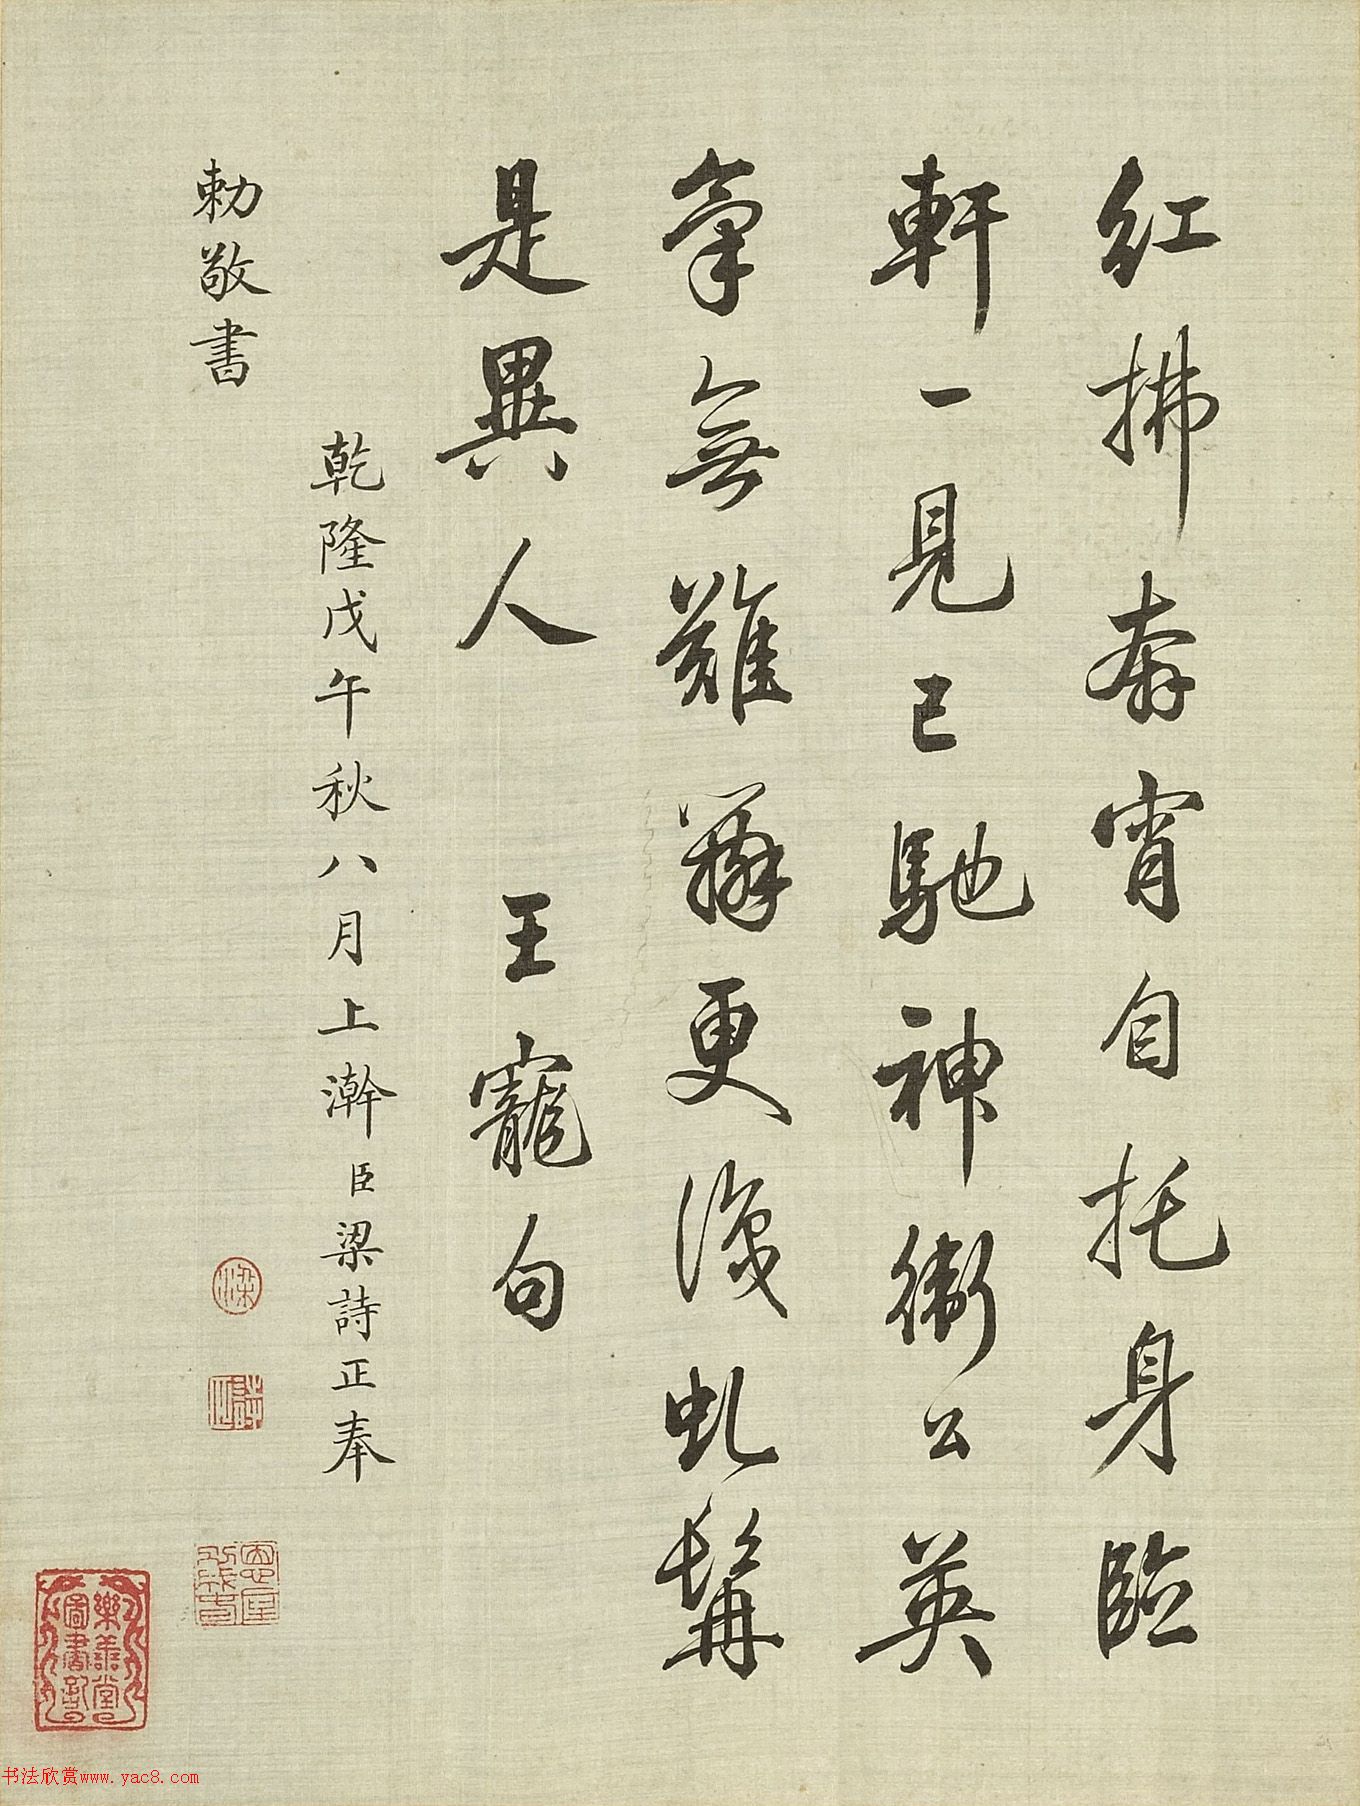 紅拂奔宵自托身臨
軒一見已馳神衛公英
氣無難辨更識虬髯
是異人 王寵句
乾隆戊午秋八月上澣臣梁詩正奉
勅敬書
梁
樂善堂
圖書記
书法欣赏www.yac8.com